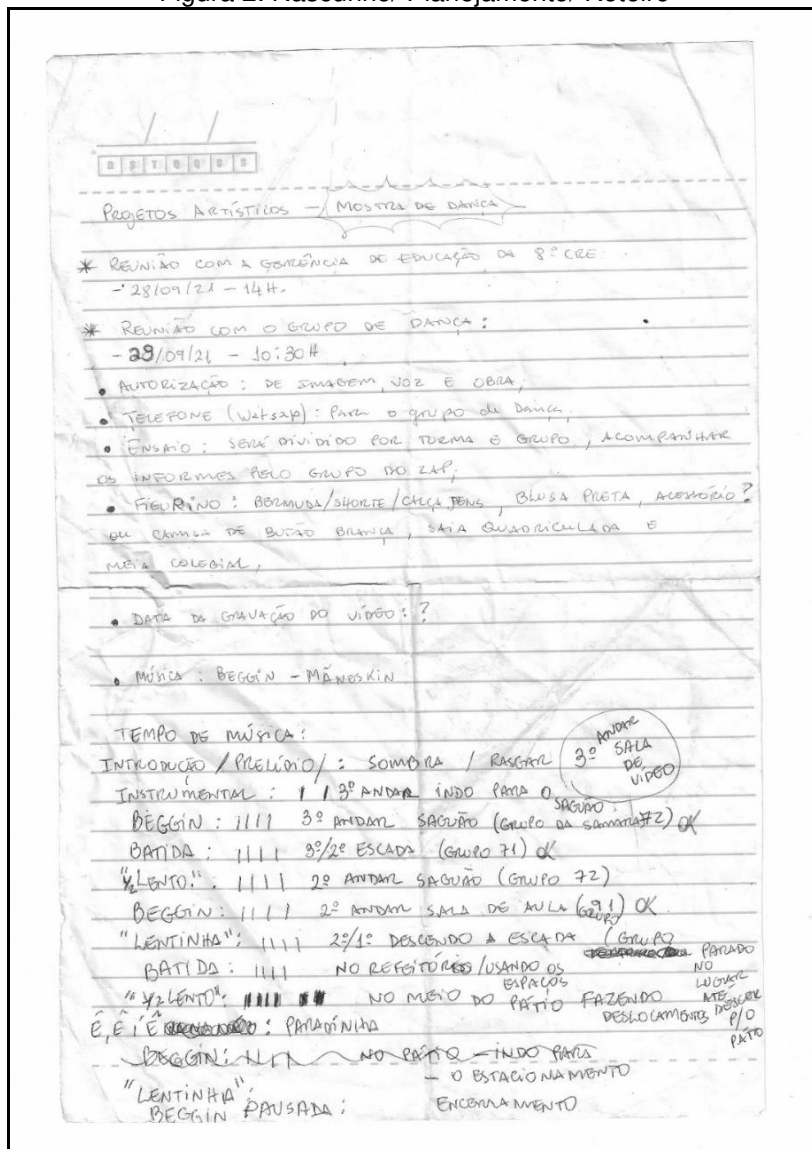 Figura 2: Rascunho/ Planejamento/ Roteiro
D S T Q Q S S
PROJETOS ARTÍSTICOS - MOSTRA DE DANÇA
* REUNIÃO COM A GERÊNCIA DE EDUCAÇÃO DA 8ª CRE:
- 28/09/21 - 14H.
* REUNIÃO COM O GRUPO DE DANÇA:
- 29/09/21 - 10:30H
• AUTORIZAÇÃO: DE IMAGEM, VOZ E OBRA,
• TELEFONE (Watsap): Para o grupo de Dança,
• ENSAIO: SERÁ DIVIDIDO POR TURMA E GRUPO, ACOMPANHAR
OS INFORMES PELO GRUPO DO ZAP;
• FIGURINO: BERMUDA/SHORTE/CALÇA JENS, BLUSA PRETA, ACESSÓRIO?
OU CAMISA DE BUTÃO BRANCA, SAIA QUADRICULADA E
MEIA COLEGIAL,
• DATA DA GRAVAÇÃO DO VÍDEO: ?
• MÚSICA: BEGGIN - MÃNESKIN
TEMPO DE MÚSICA:
INTRODUÇÃO / PRELÚDIO/: SOMBRA / RASGAR 3º ANDAR SALA DE VIDEO
INSTRUMENTAL: I I 3º ANDAR INDO PARA O SAGUÃO
BEGGIN: IIII 3º ANDAR SAGUÃO (GRUPO DA SAMARA 72) OK
BATIDA: IIII 3º/2º ESCADA (GRUPO 71) OK
"½ LENTO": IIII 2º ANDAR SAGUÃO (GRUPO 72)
BEGGIN: IIII 2º ANDAR SALA DE AULA (GRUPO 91) OK
"LENTINHA": IIII 2º/1º DESCENDO A ESCADA (GRUPO PARADO NO LUGAR ATÉ DESCER P/O PÁTIO
BATIDA: IIII NO REFEITÓRIO/USANDO OS ESPAÇOS
"½ LENTO": IIII NO MEIO DO PÁTIO FAZENDO DESLOCAMENTOS
Ê, Ê, Ê: PARADINHA
BEGGIN: IIII NO PÁTIO - INDO PARA
- O ESTACIONAMENTO
"LENTINHA":
BEGGIN PAUSADA: ENCERRAMENTO